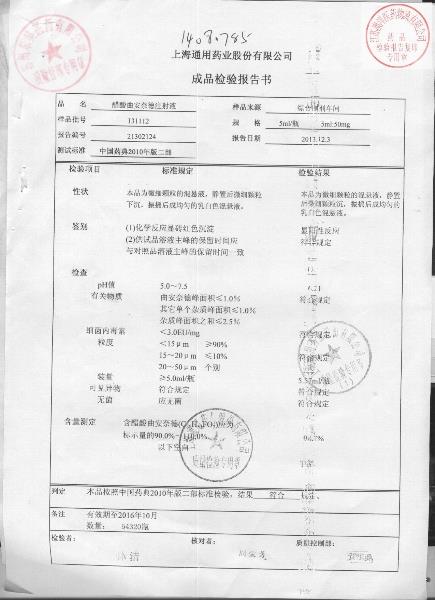 1409.785
上海通用药业股份有限公司
成品检验报告书
品 名 醋酸曲安奈德注射液 样品来源 综合制剂车间
样品批号 131112 规 格 5ml/瓶 5ml:50mg
报告编号 21302124 报告日期 2013.12.3
测试标准 中国药典2010年版二部
检验项目 标准规定 检验结果
性状 本品为微细颗粒的混悬液，静置后微细颗粒下沉，振摇后成均匀的乳白色混悬液。 本品为微细颗粒的混悬液，静置后微细颗粒下沉，振摇后成均匀的乳白色混悬液。
鉴别 (1)化学反应显砖红色沉淀 显阳性反应
(2)供试品溶液主峰的保留时间应 符合规定
与对照品溶液主峰的保留时间一致
检查
pH值 5.0～7.5
有关物质 曲安奈德峰面积≤1.0% 符合规定
其它单个杂质峰面积≤1.0%
杂质峰面积之和≤2.5%
细菌内毒素 <3.0EU/mg 符合规定
粒度 <15μm ≥90%
15～20μm ≤10% 符合规定
20～50μm 个别
装量 ≥5.0ml/瓶
可见异物 符合规定 符合规定
无菌 应无菌 符合规定
含量测定 含醋酸曲安奈德 应为
标示量的90.0%～110.0%
以下空白
判定 本品按照中国药典2010年版二部标准检验，结果 符合 规定
备注 有效期至2016年10月
数量: 64320瓶
检验者: 核对者: 质量控制部: